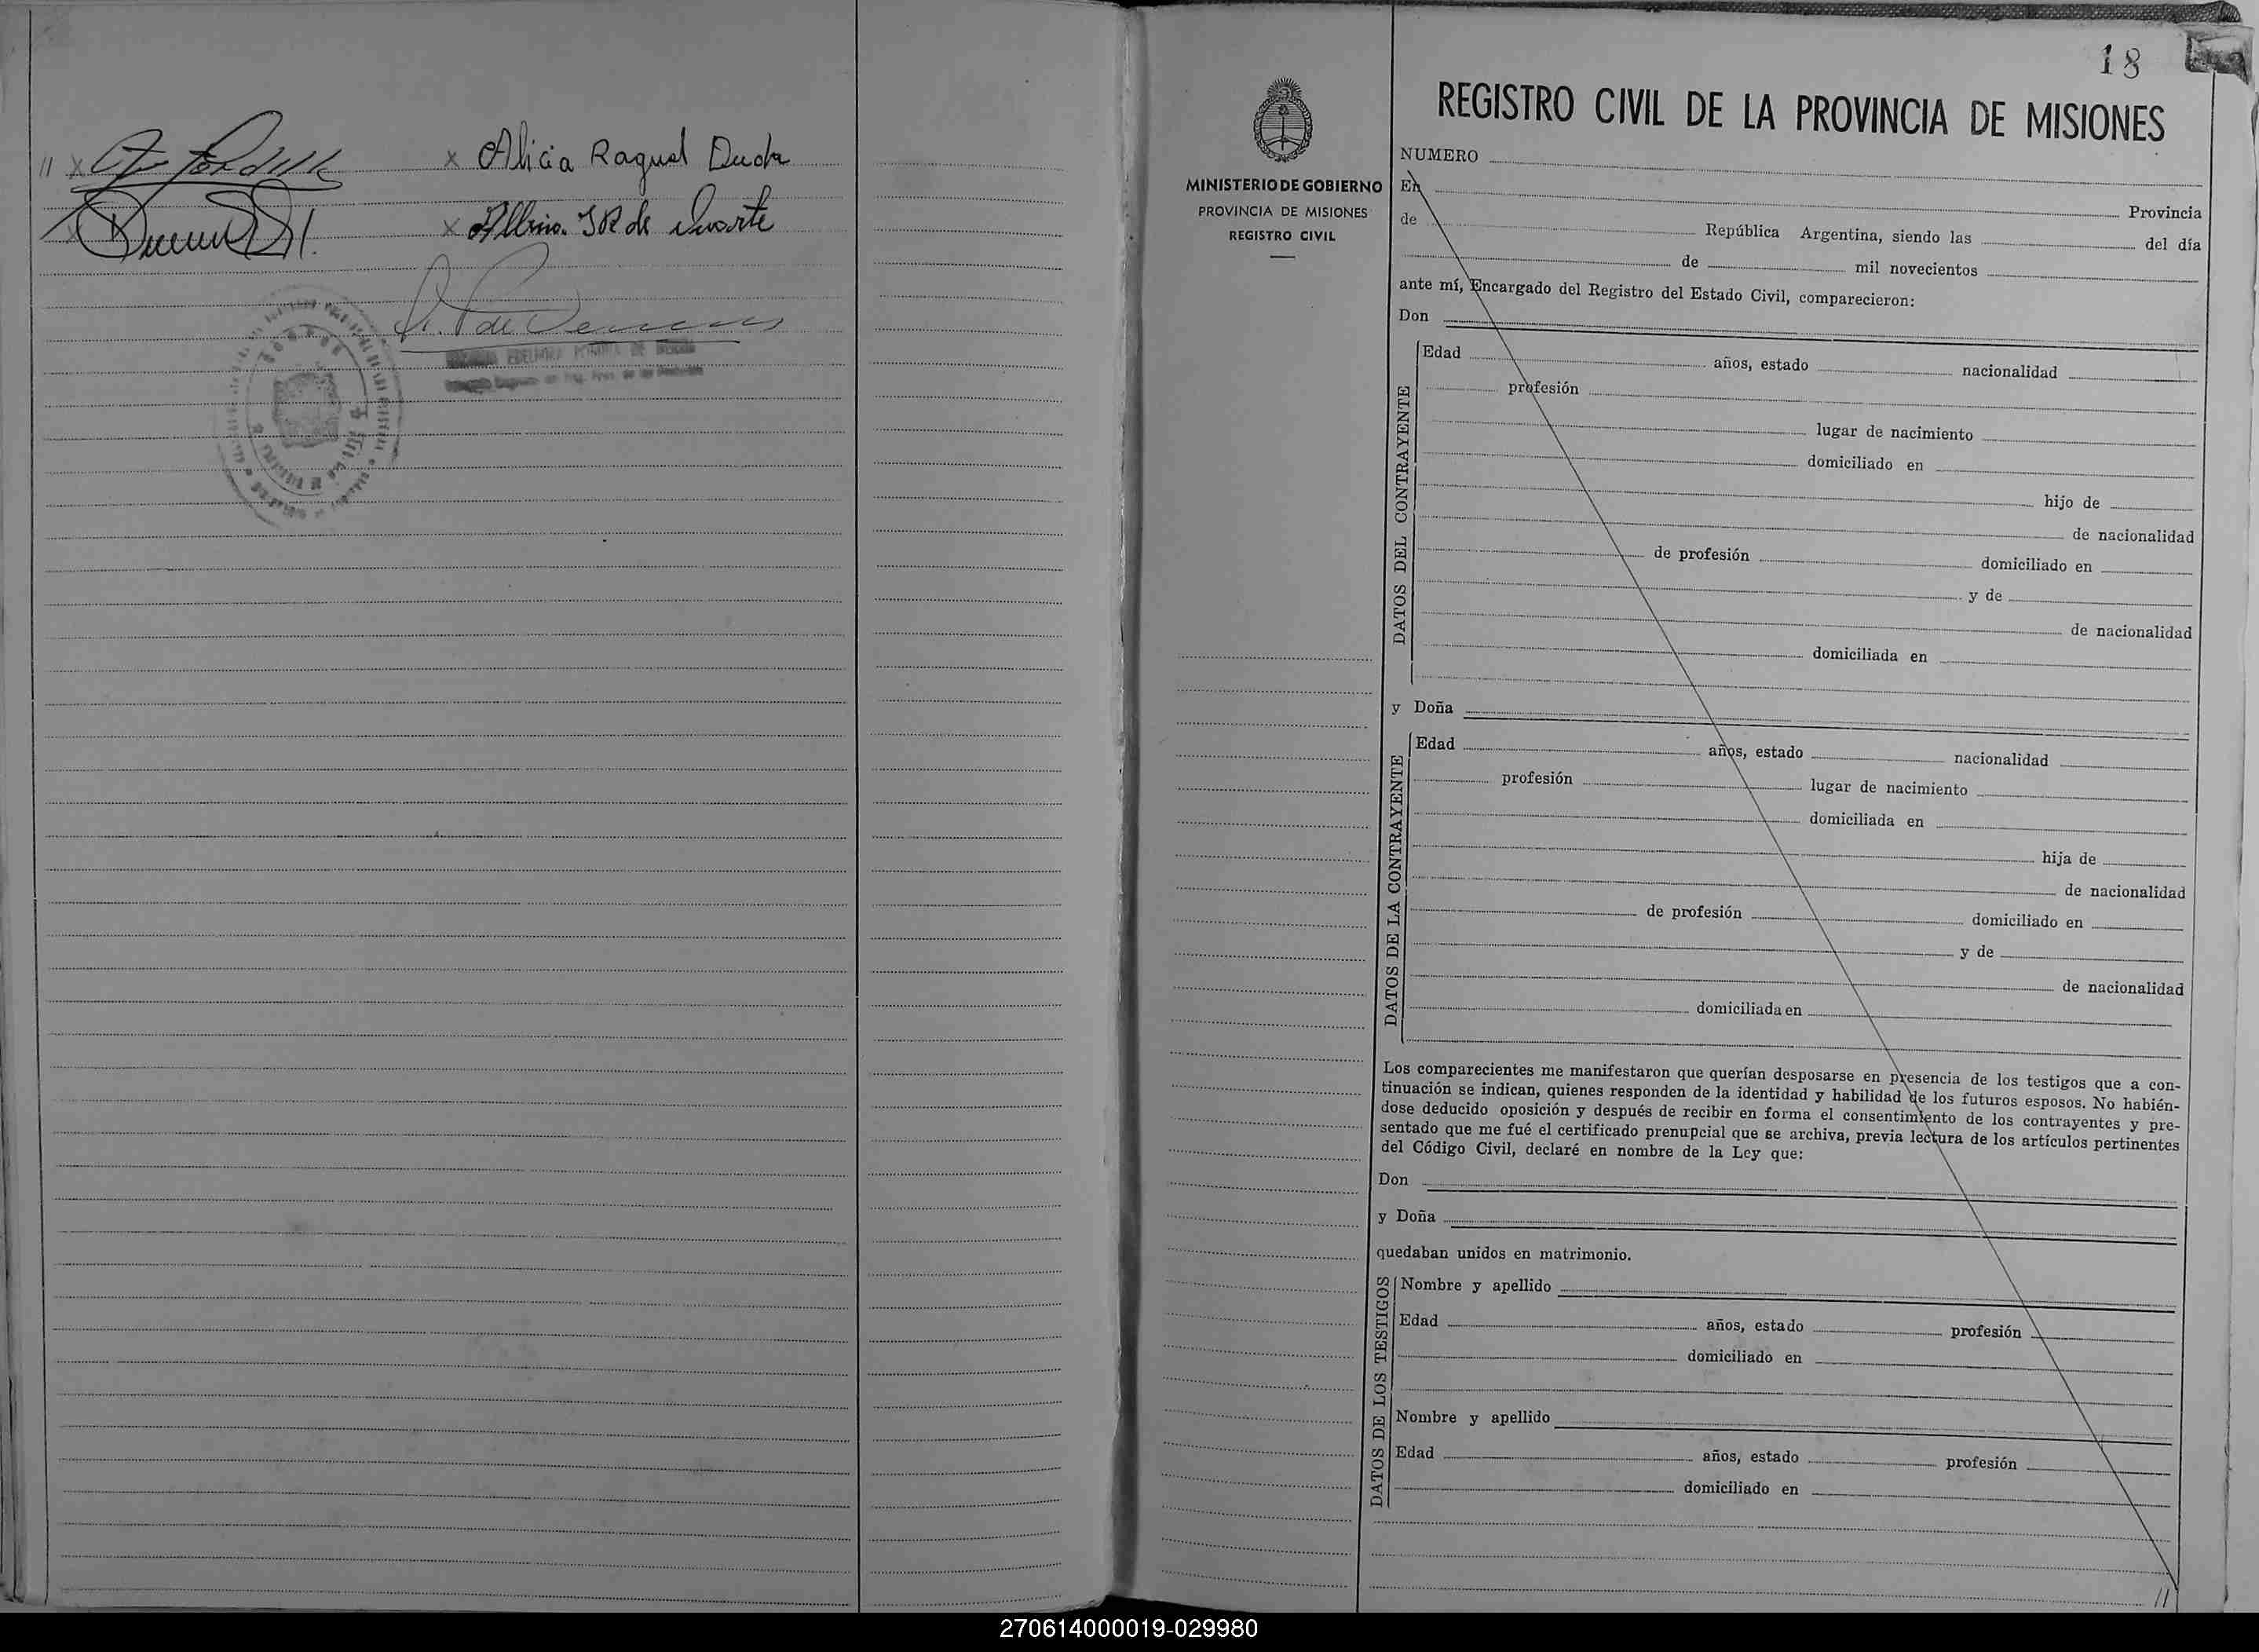 // x x Alicia Raquel Duda
x
18
REGISTRO CIVIL DE LA PROVINCIA DE MISIONES
MINISTERIO DE GOBIERNO
PROVINCIA DE MISIONES
REGISTRO CIVIL
NUMERO
En Provincia
de República Argentina, siendo las del día
de mil novecientos
ante mí, Encargado del Registro del Estado Civil, comparecieron:
Don
DATOS DEL CONTRAYENTE
Edad años, estado nacionalidad
profesión
lugar de nacimiento
domiciliado en
hijo de
de nacionalidad
de profesión domiciliado en
y de
de nacionalidad
domiciliada en
y Doña
DATOS DE LA CONTRAYENTE
Edad años, estado nacionalidad
profesión lugar de nacimiento
domiciliada en
hija de
de nacionalidad
de profesión domiciliado en
y de
de nacionalidad
domiciliada en
Los comparecientes me manifestaron que querían desposarse en presencia de los testigos que a con-
tinuación se indican, quienes responden de la identidad y habilidad de los futuros esposos. No habién-
dose deducido oposición y después de recibir en forma el consentimiento de los contrayentes y pre-
sentado que me fué el certificado prenupcial que se archiva, previa lectura de los artículos pertinentes
del Código Civil, declaré en nombre de la Ley que:
Don
y Doña
quedaban unidos en matrimonio.
DATOS DE LOS TESTIGOS
Nombre y apellido
Edad años, estado profesión
domiciliado en
Nombre y apellido
Edad años, estado profesión
domiciliado en
//
270614000019-029980